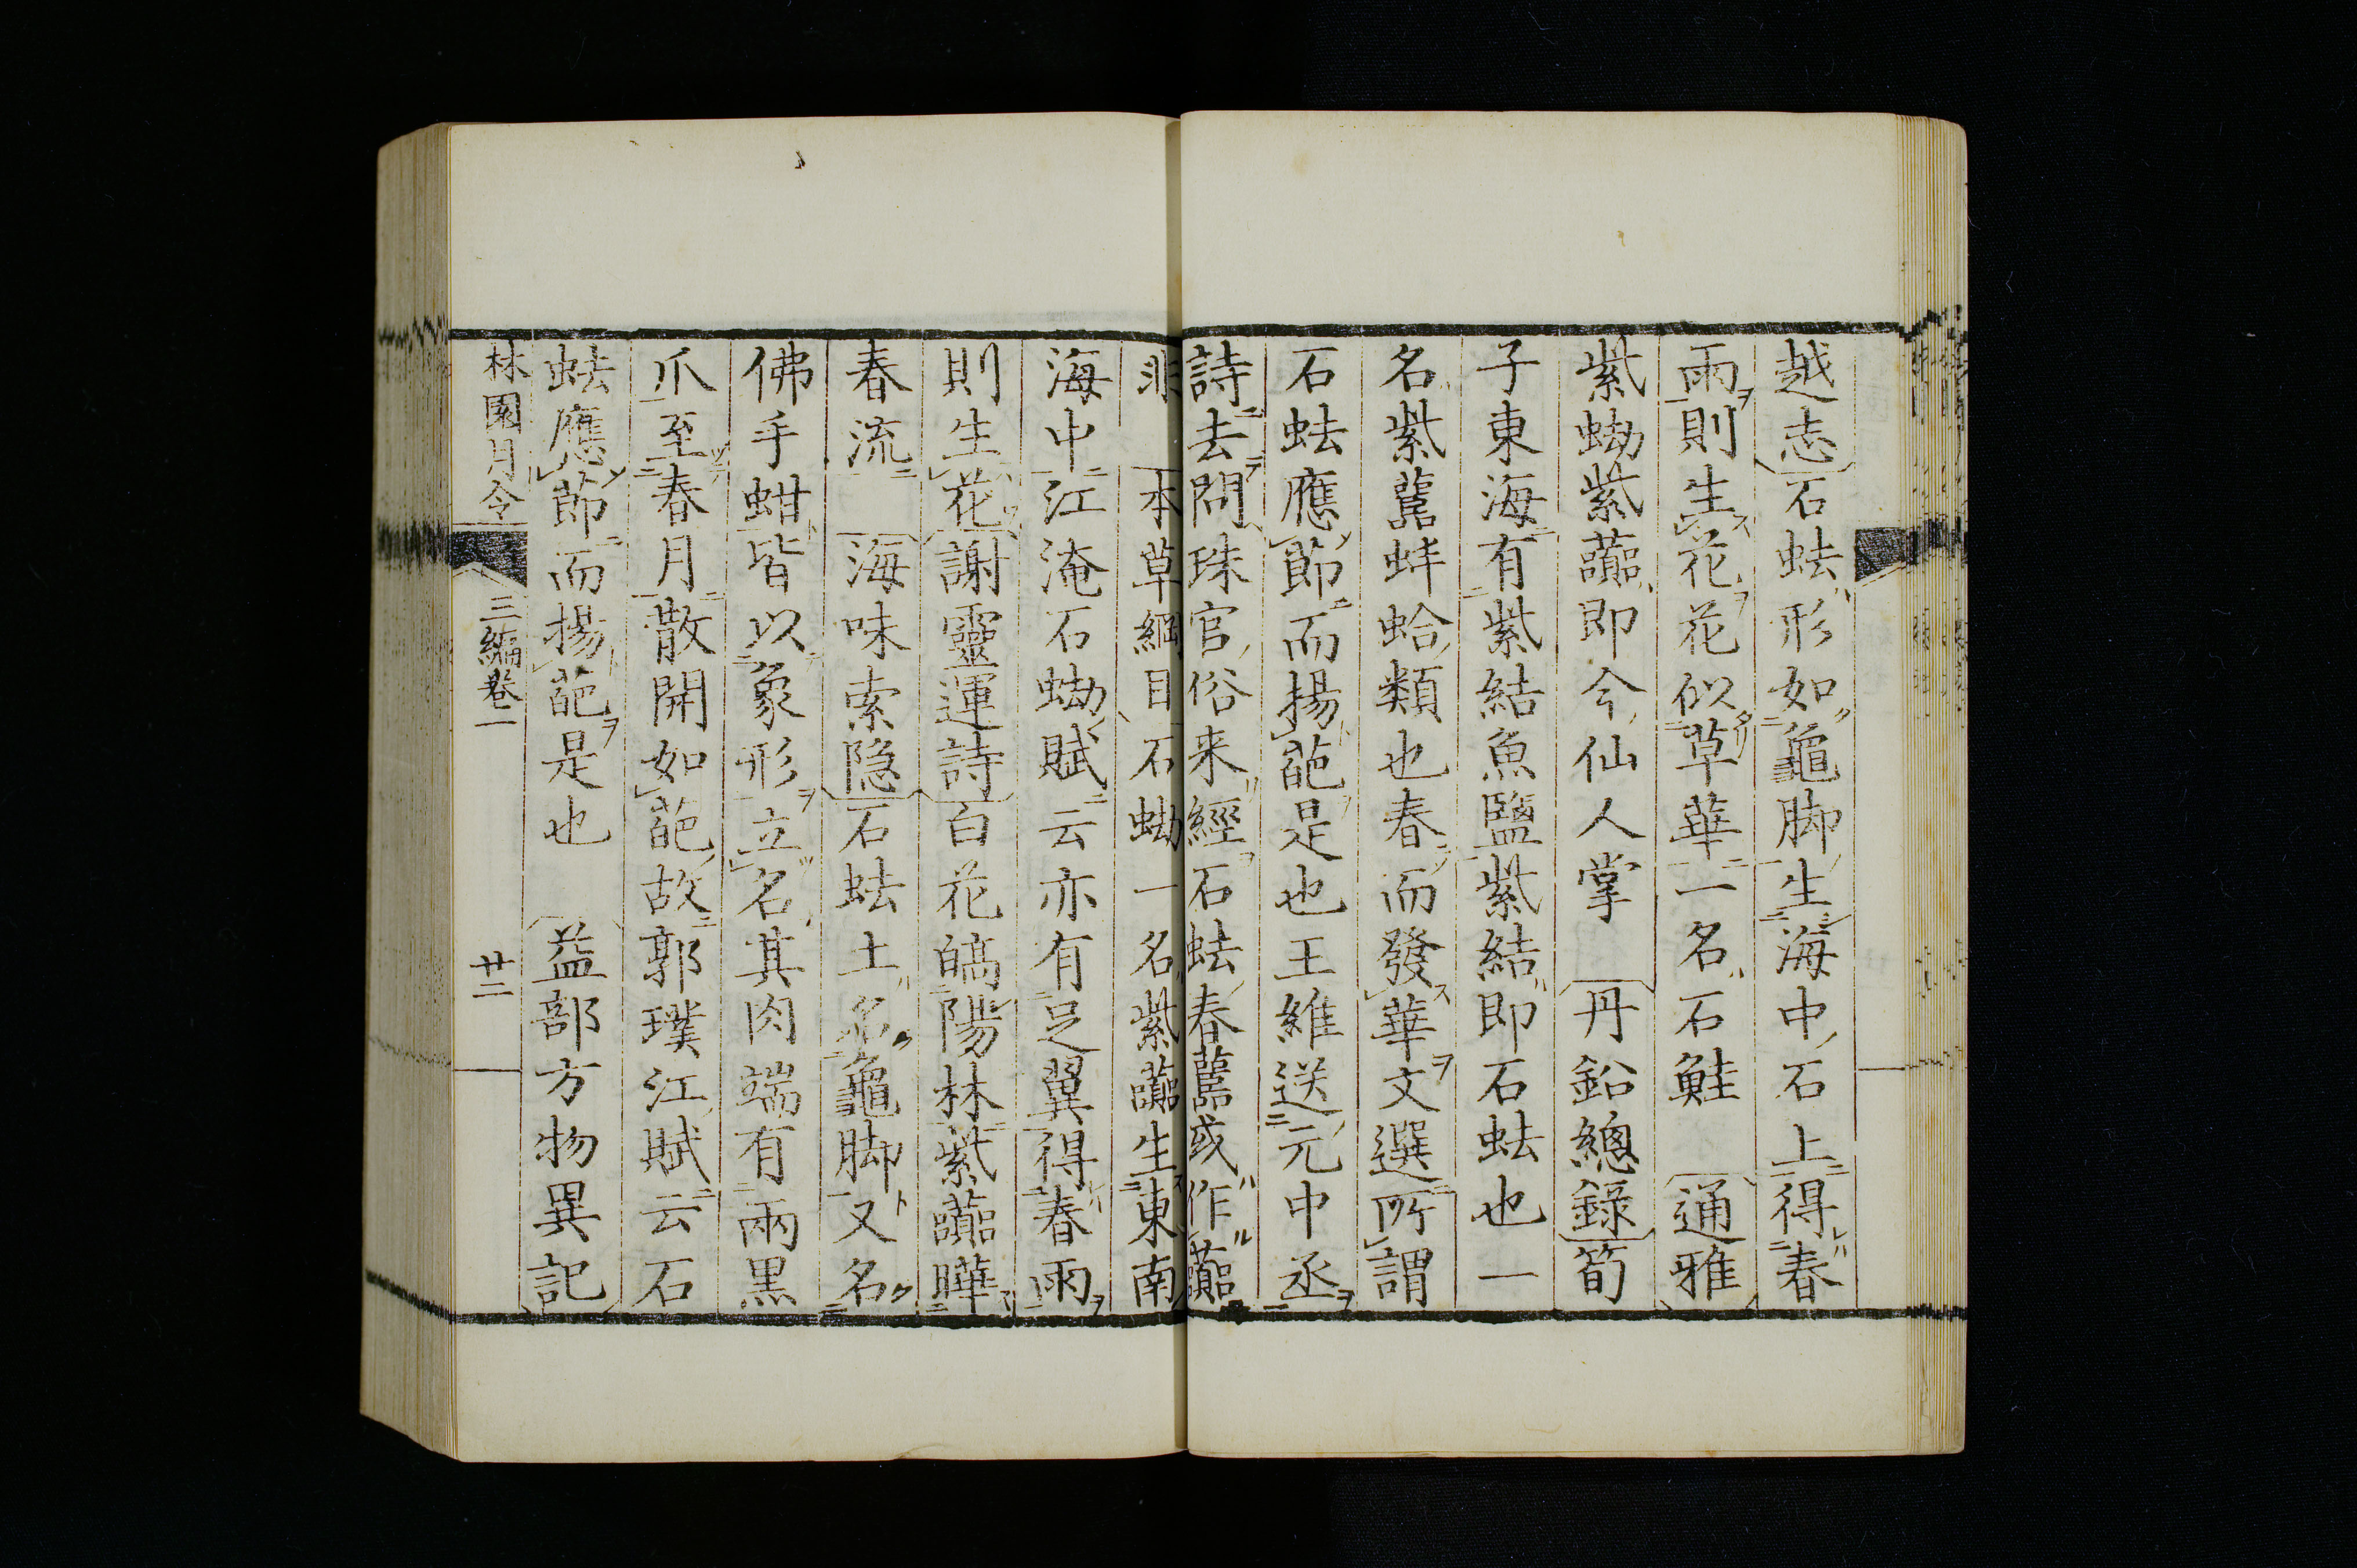 越志石蚨形如龜脚生海中石上得春
雨則生花花似草華一名石鮭　通雅
紫蚴紫䖇即今仙人掌　丹鉛總錄荀
子東海有紫結魚鹽紫結即石蚨也一
名紫蚌蛤類也春而發華文選所謂
石蚨應節而揚葩是也王維送元中丞
詩去問珠官俗来經石蚨春或作
非　本草綱目石蚴一名紫生東南
海中江淹石蚴賦云亦有足翼得春雨
則生花謝靈運詩白花皜陽林紫曄
春流　海味索隐石蚨土名龜脚又名
佛手蚶皆以象形立名其肉端有兩黒
爪至春月散開如葩故郭璞江賦云石
蚨應節而揚葩是也　益部方物異記
林園月令　三編卷一　廿二